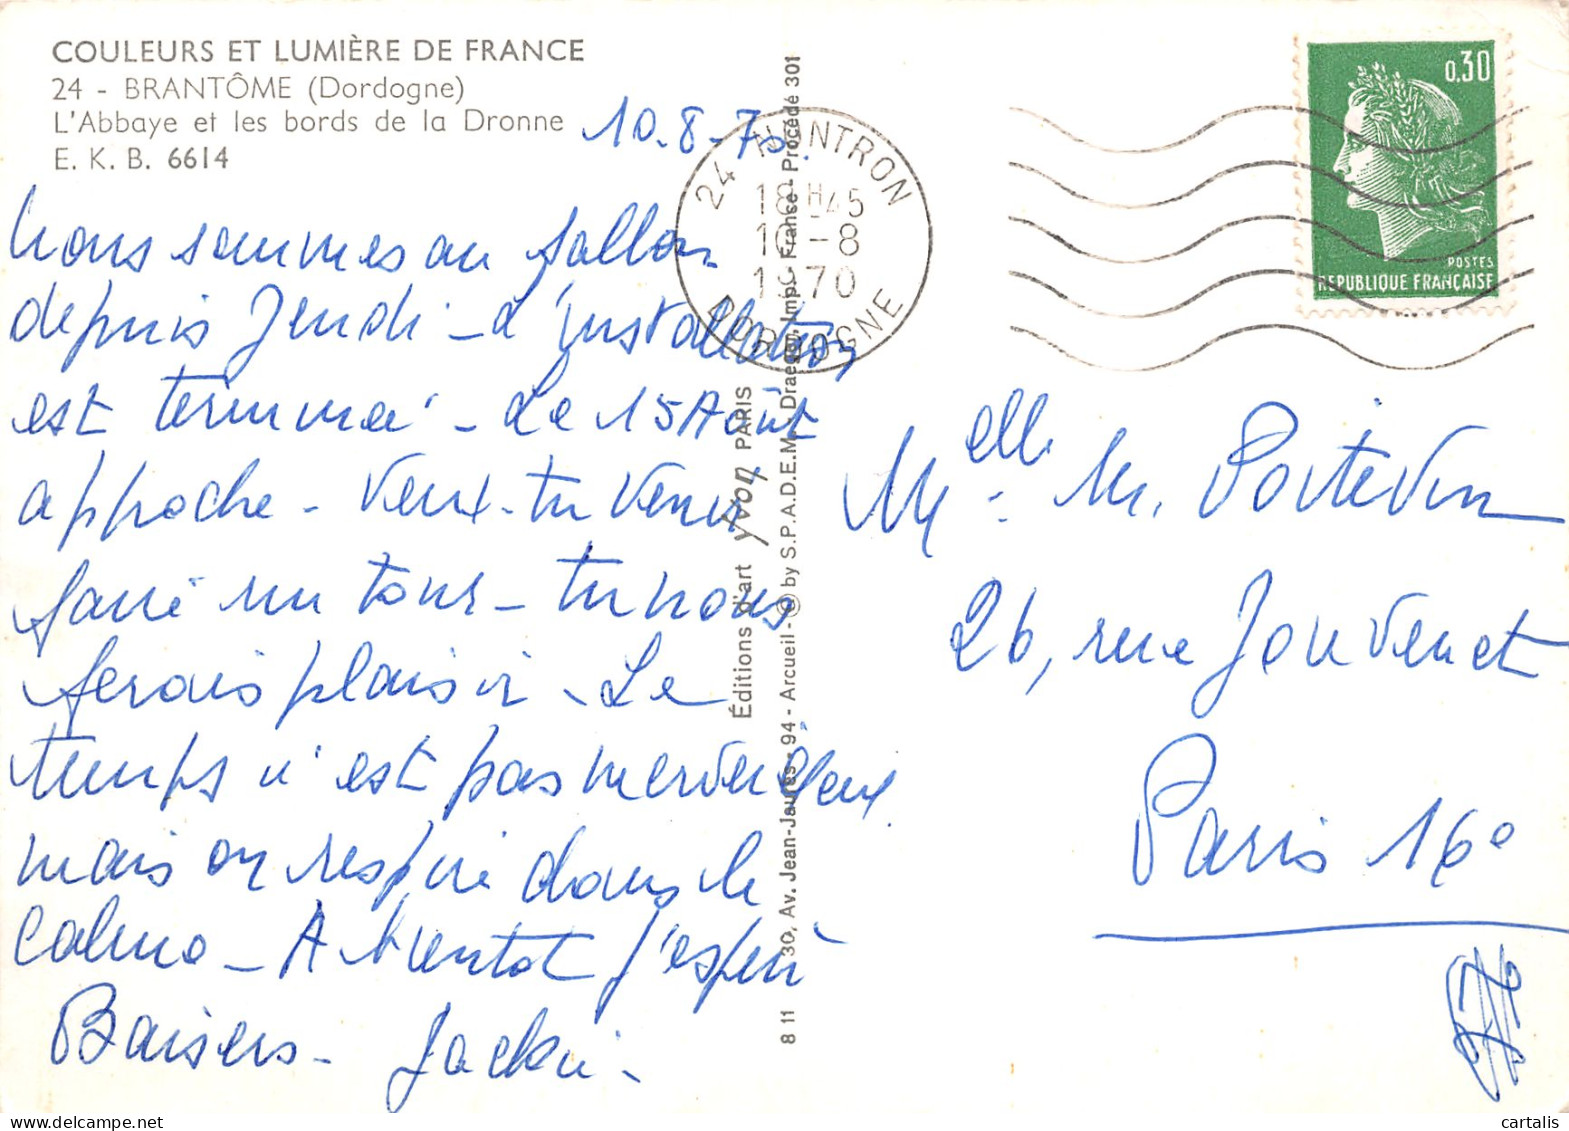 COULEURS ET LUMIÈRE DE FRANCE
24 - BRANTÔME (Dordogne)
L'Abbaye et les bords de la Dronne
E. K. B. 6614
10.8-70.
Nous sommes au
depuis Jeudi - L'installation
est terminée - Le 15 Août
approche - Veux-tu venir
faire un tour - tu nous
ferais plaisir - Le
temps n'est pas merveilleux
mais on respire dans le
calme - A bientôt j'espère
Baisers - Jacki -
24 NONTRON
18H45
10-8
1970
DORDOGNE
Éditions d'art Yvon PARIS
8 11 30, Av. Jean-Jaurès - 94 - Arcueil - © by S.P.A.D.E.M. - Draeger, Imp. - France - Procédé 301
0,30
POSTES
REPUBLIQUE FRANÇAISE
Melle M. Poitevin
26, rue Jouvenet
Paris 16e
cartalis